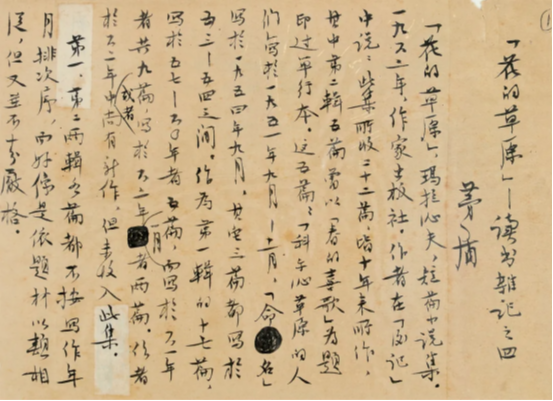 「花的草原」—读书雜记之四
茅盾
「花的草原」，瑪拉沁夫，短篇小说集。
一九六二年，作家出版社。作者在「后记」
中说：此集所收二十二篇，皆十年来所作，
其中第二輯五篇曾以「春的喜歌」为題
印过单行本。这五篇：「科尔沁草原的人
们」写於一九五一年九月—十二月，「命名」
写於一九五四年九月，其它三篇都写於
五三—五四之间。作为第一輯的十七篇，
写於五七—五〇年者五篇，而写於六一年
者共九篇，写於六二年一月者两篇。作者
於六二年中或者尚有新作，但未收入此集。
第一、第二两輯各篇都不按写作年
月排次序，而好像是依題材以類相
從，但又並不十分嚴格。